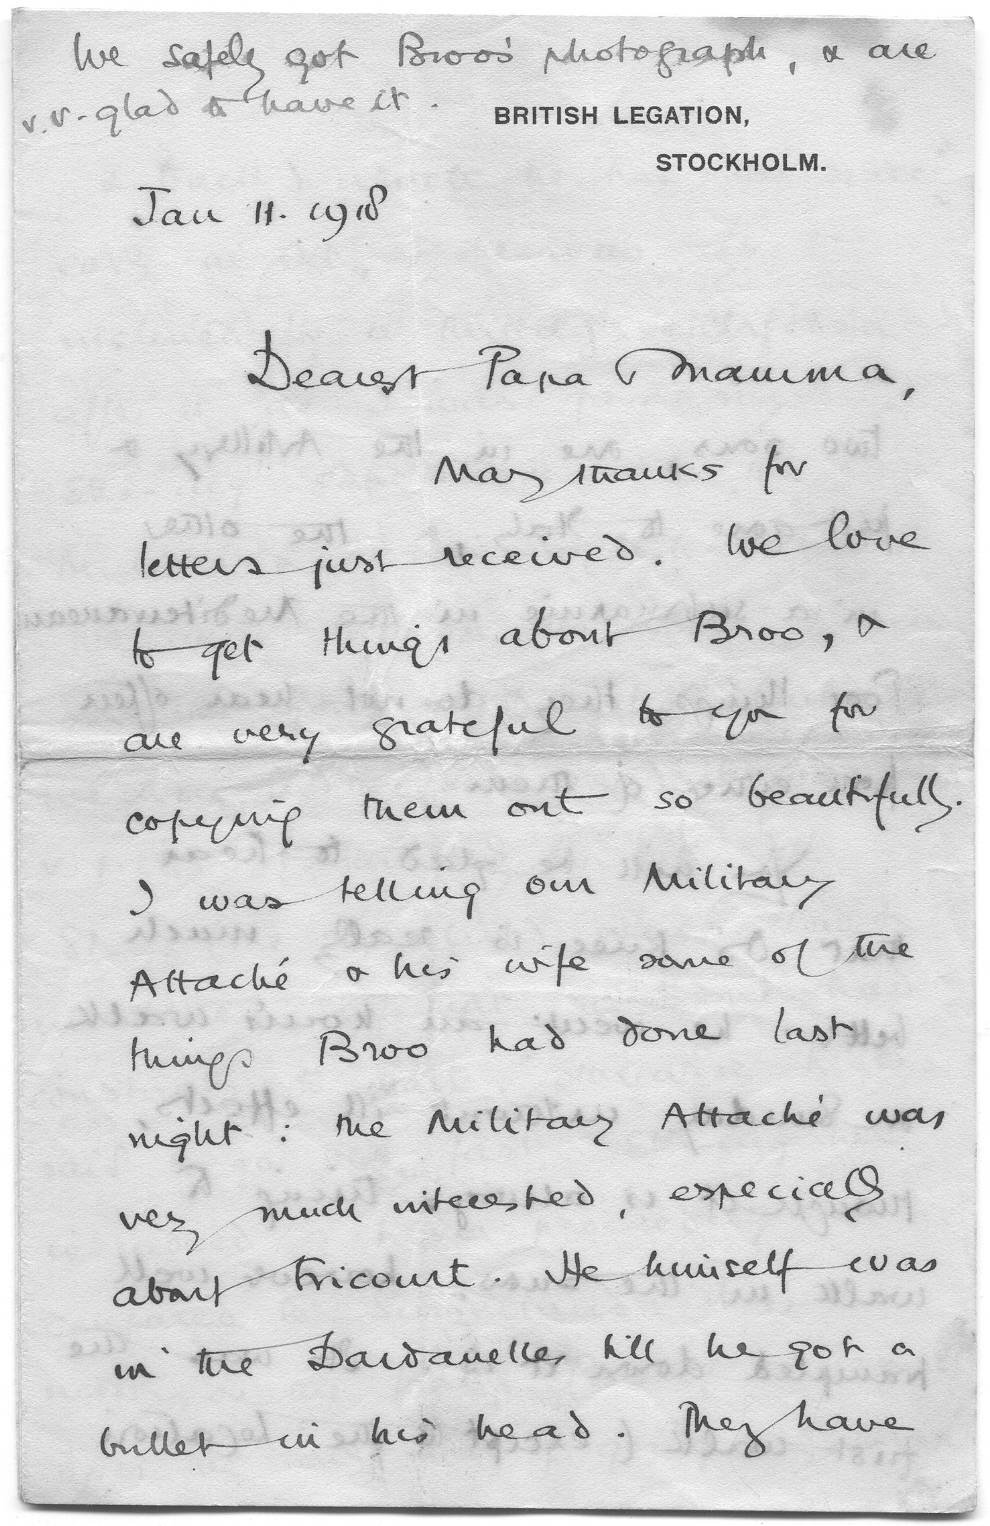 We safely got Broo's photograph, & are
v.v. glad to have it.
BRITISH LEGATION,
STOCKHOLM.
Jan 11. 1918
Dearest Papa & Mamma,
Many thanks for
letters just received. We love
to get things about Broo, &
are very grateful to you for
copying them out so beautifully.
I was telling our Military
Attaché & his wife some of the
things Broo had done last
night: the Military Attaché was
very much interested, especially
about Fricourt. He himself was
in the Dardanelles till he got a
bullet in his head. They have